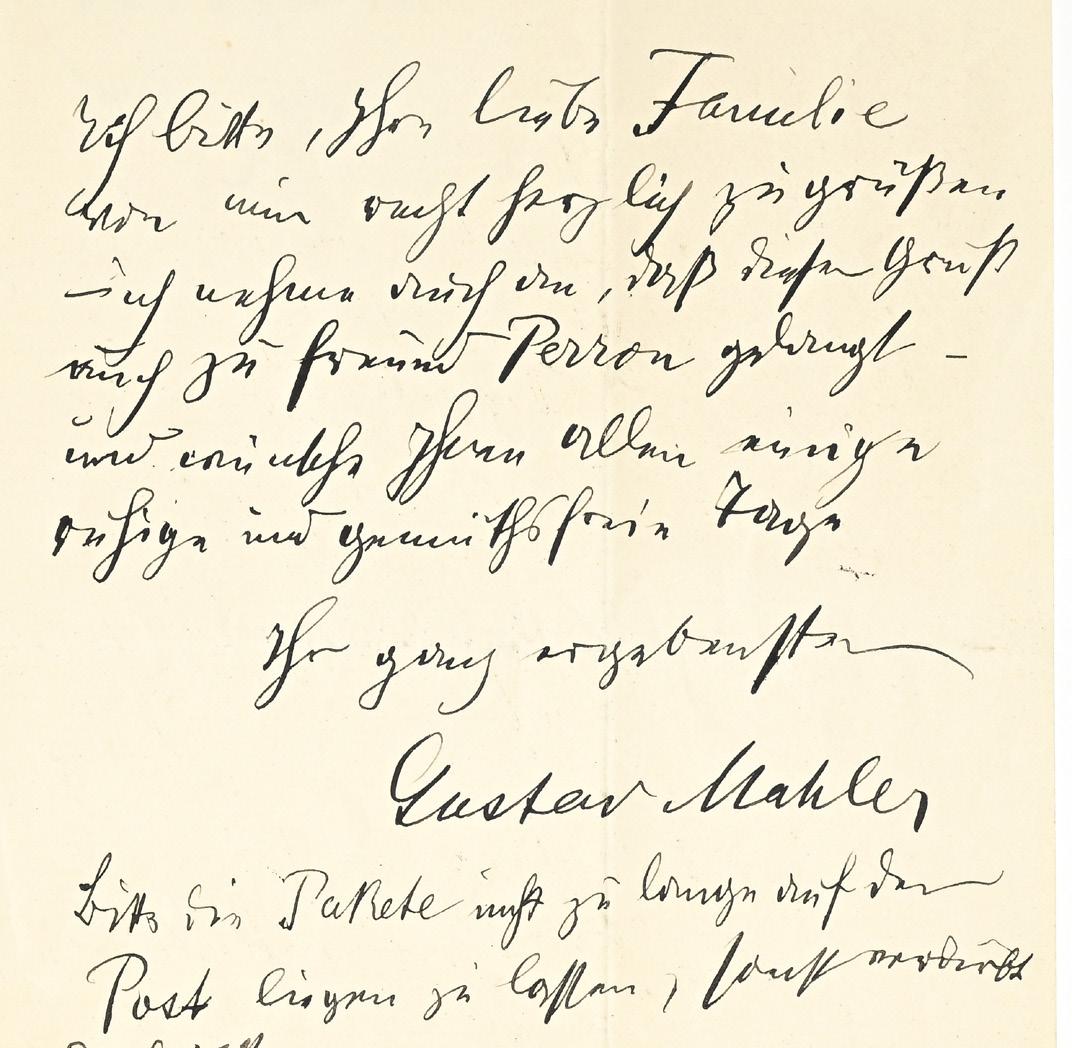 Ich bitte, Ihre liebe Familie
von mir recht herzlich zu grüßen
ich nehme auch an, daß dieser Gruß
auch zu Freund Perron gelangt –
und wünsche Ihnen allen einige
ruhige und gemüthsfreie Tage
Ihr ganz ergebenster
Gustav Mahler
Bitte die Pakete nicht zu lange auf der
Post liegen zu lassen, sonst verdirbt